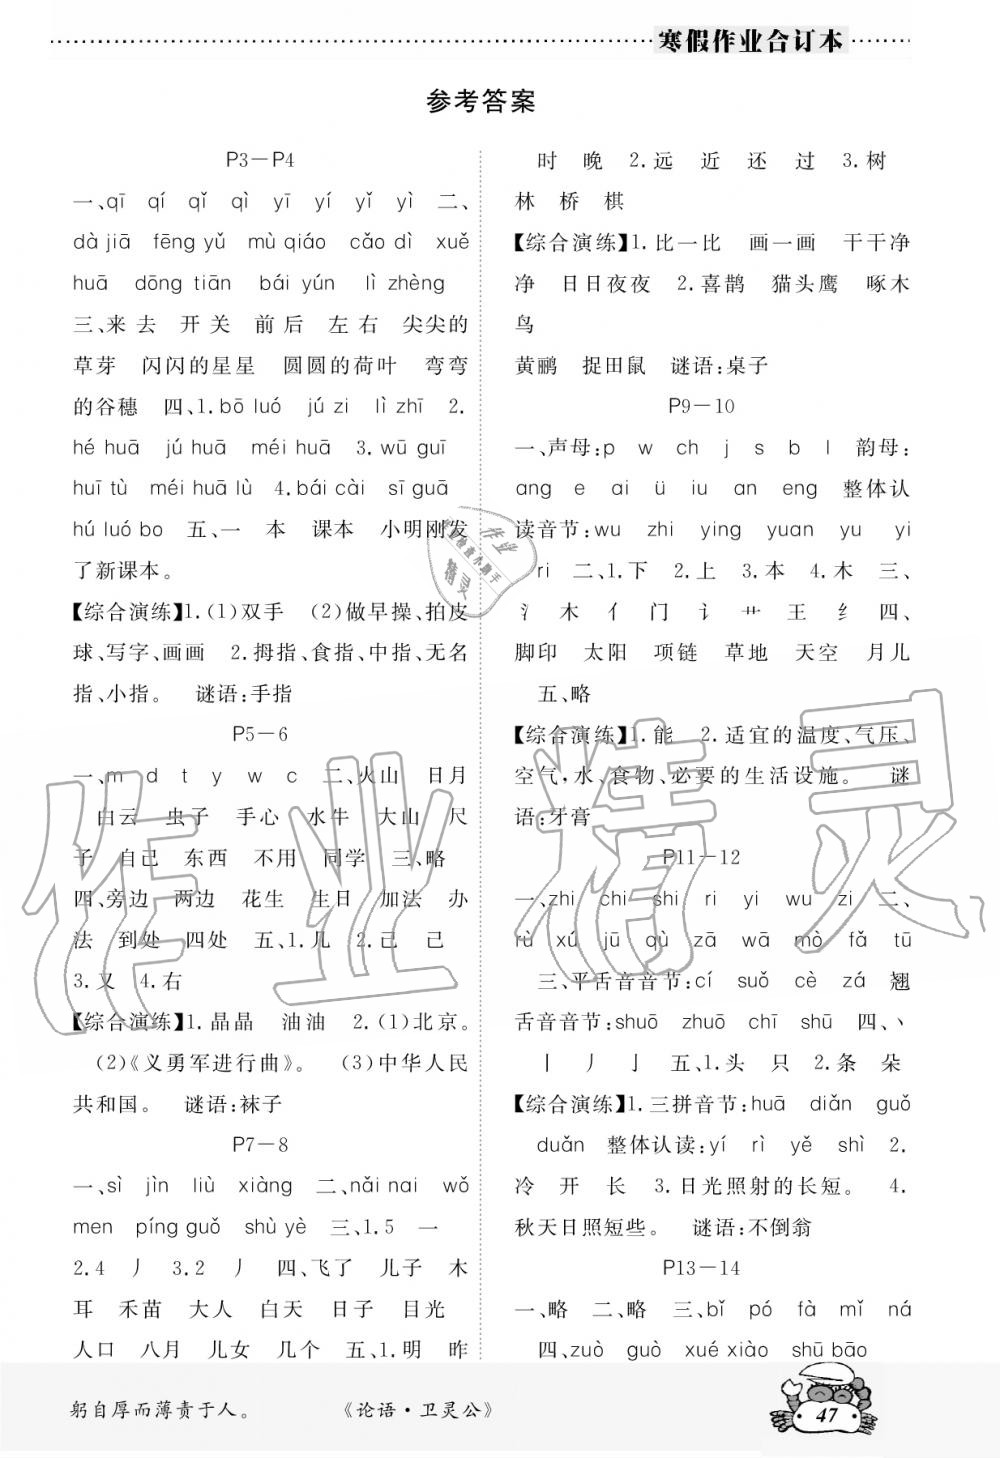 寒假作业合订本
参考答案
P3－P4
一、qī qí qǐ qì yī yí yǐ yì 二、
dà jiā fēng yǔ mù qiáo cǎo dì xuě
huā dōng tiān bái yún lì zhèng
三、来 去 开 关 前 后 左 右 尖尖的
草芽 闪闪的星星 圆圆的荷叶 弯弯
的谷穗 四、1.bō luó jú zi lì zhī 2.
hé huā jú huā méi huā 3.wū guī
huī tù méi huā lù 4.bái cài sī guā
hú luó bo 五、一 本 课本 小明刚发
了新课本。
【综合演练】1.(1)双手 (2)做早操、拍皮
球、写字、画画 2.拇指、食指、中指、无名
指、小指。 谜语:手指
P5－6
一、m d t y w c 二、火山 日月
白云 虫子 手心 水牛 大山 尺
子 自己 东西 不用 同学 三、略
四、旁边 两边 花生 生日 加法 办
法 到处 四处 五、1.儿 2.己 已
3.又 4.右
【综合演练】1.晶晶 油油 2.(1)北京。
(2)《义勇军进行曲》。 (3)中华人民
共和国。 谜语:袜子
P7－8
一、sì jìn liù xiàng 二、nǎi nai wǒ
men píng guǒ shù yè 三、1.5 一
2.4 丿 3.2 丿 四、飞了 儿子 木
耳 禾苗 大人 白天 日子 目光
人口 八月 儿女 几个 五、1.明 昨
时 晚 2.远 近 还 过 3.树
林 桥 棋
【综合演练】1.比一比 画一画 干干净
净 日日夜夜 2.喜鹊 猫头鹰 啄木
鸟
黄鹂 捉田鼠 谜语:桌子
P9－10
一、声母:p w ch j s b l 韵母:
ang e ai ü iu an eng 整体认
读音节:wu zhi ying yuan yu yi
ri 二、1.下 2.上 3.本 4.木 三、
氵 木 亻 门 讠 艹 王 纟 四、
脚印 太阳 项链 草地 天空 月儿
五、略
【综合演练】1.能 2.适宜的温度、气压、
空气,水、食物、必要的生活设施。 谜
语:牙膏
P11－12
一、zhi chi shi ri yi wu zi 二、
rù xú jū qù zā wā mò fǎ tū
三、平舌音音节:cí suǒ cè zá 翘
舌音音节:shuō zhuō chī shū 四、丶
丨 丿 亅 五、1.头 只 2.条 朵
【综合演练】1.三拼音节:huā diǎn guǒ
duǎn 整体认读:yí rì yě shì 2.
冷 开 长 3.日光照射的长短。 4.
秋天日照短些。 谜语:不倒翁
P13－14
一、略 二、略 三、bǐ pó fà mǐ ná
四、zuò guò xué xiào shū bāo
躬自厚而薄责于人。 《论语·卫灵公》
47
作业精灵
作业
精灵